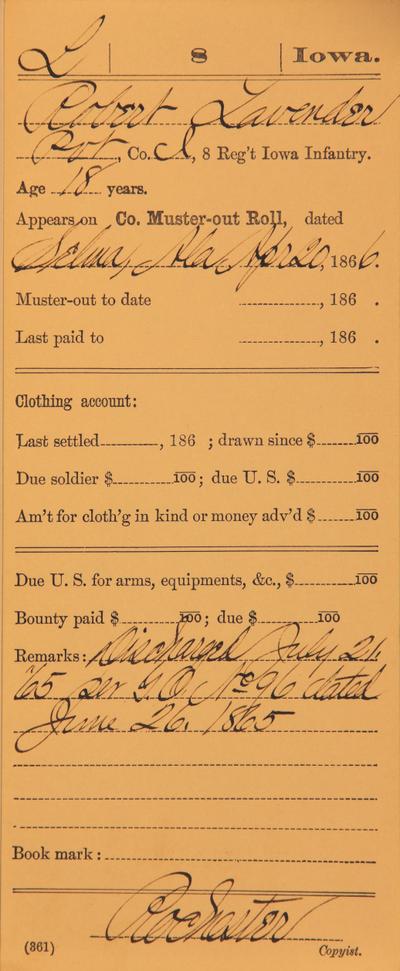 L | 8 | Iowa.
Robert Lavender
Pvt, Co. A, 8 Reg't Iowa Infantry.
Age 18 years.
Appears on Co. Muster-out Roll, dated
Selma, Ala, Apr 20, 1866.
Muster-out to date ............, 186 .
Last paid to ............, 186 .
Clothing account:
Last settled............, 186 ; drawn since $............100
Due soldier $............100; due U. S. $............100
Am't for cloth'g in kind or money adv'd $............100
Due U. S. for arms, equipments, &c., $............100
Bounty paid $............100; due $............100
Remarks: Discharged July 21,
'65 per G.O. No 96 dated
June 26, 1865
Book mark:
Rochester
(361) Copyist.